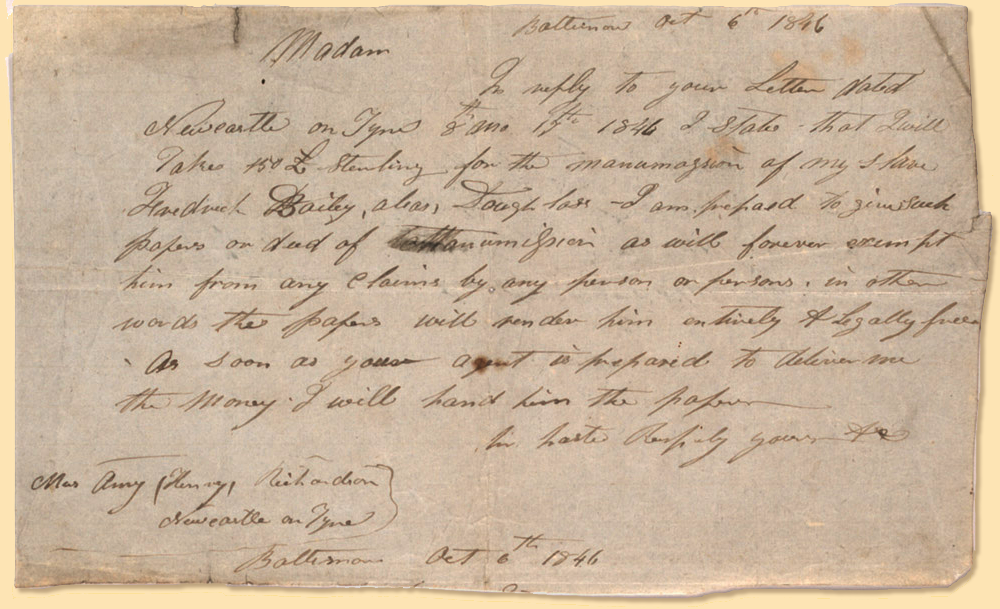 Baltimore Oct 6th 1846
Madam
In reply to your Letter dated
Newcastle on Tyne 8th mo 17th 1846 I State that I will
Take 150 £ Sterling for the manumission of my slave
Fredrick Bailey, alias, Douglass - I am prepared to give such
papers or deed of manumission as will forever exempt
him from any Claims by any person or persons. in other
words the papers will render him entirely & Legally free
As soon as your agent is prepared to deliver me
the Money I will hand him the papers
In haste Respfly yours &c
Mrs Amy (Henry) Richardson
Newcastle on Tyne
Baltimore Oct 6th 1846